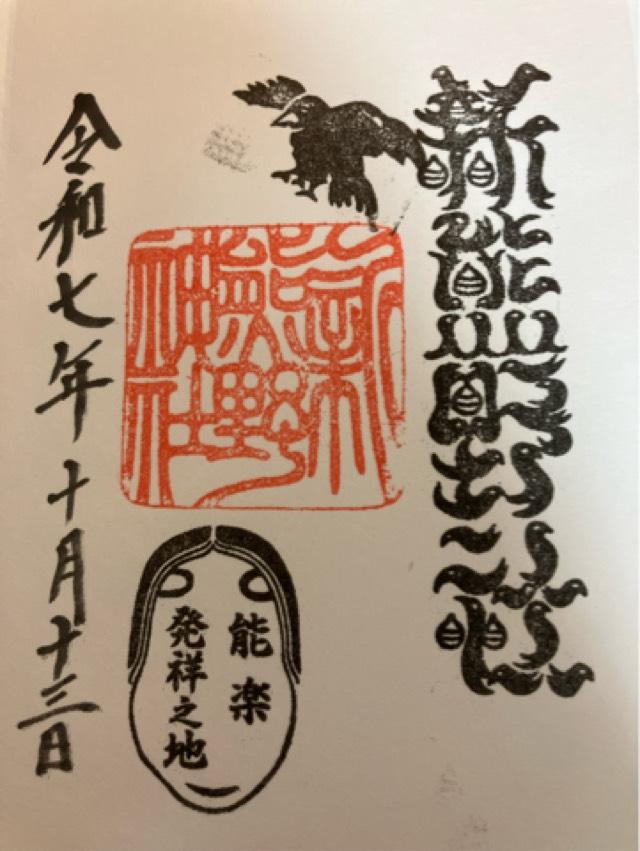 新熊野神社
新
熊野
神社
能楽
発祥之地
令和七年十月十三日